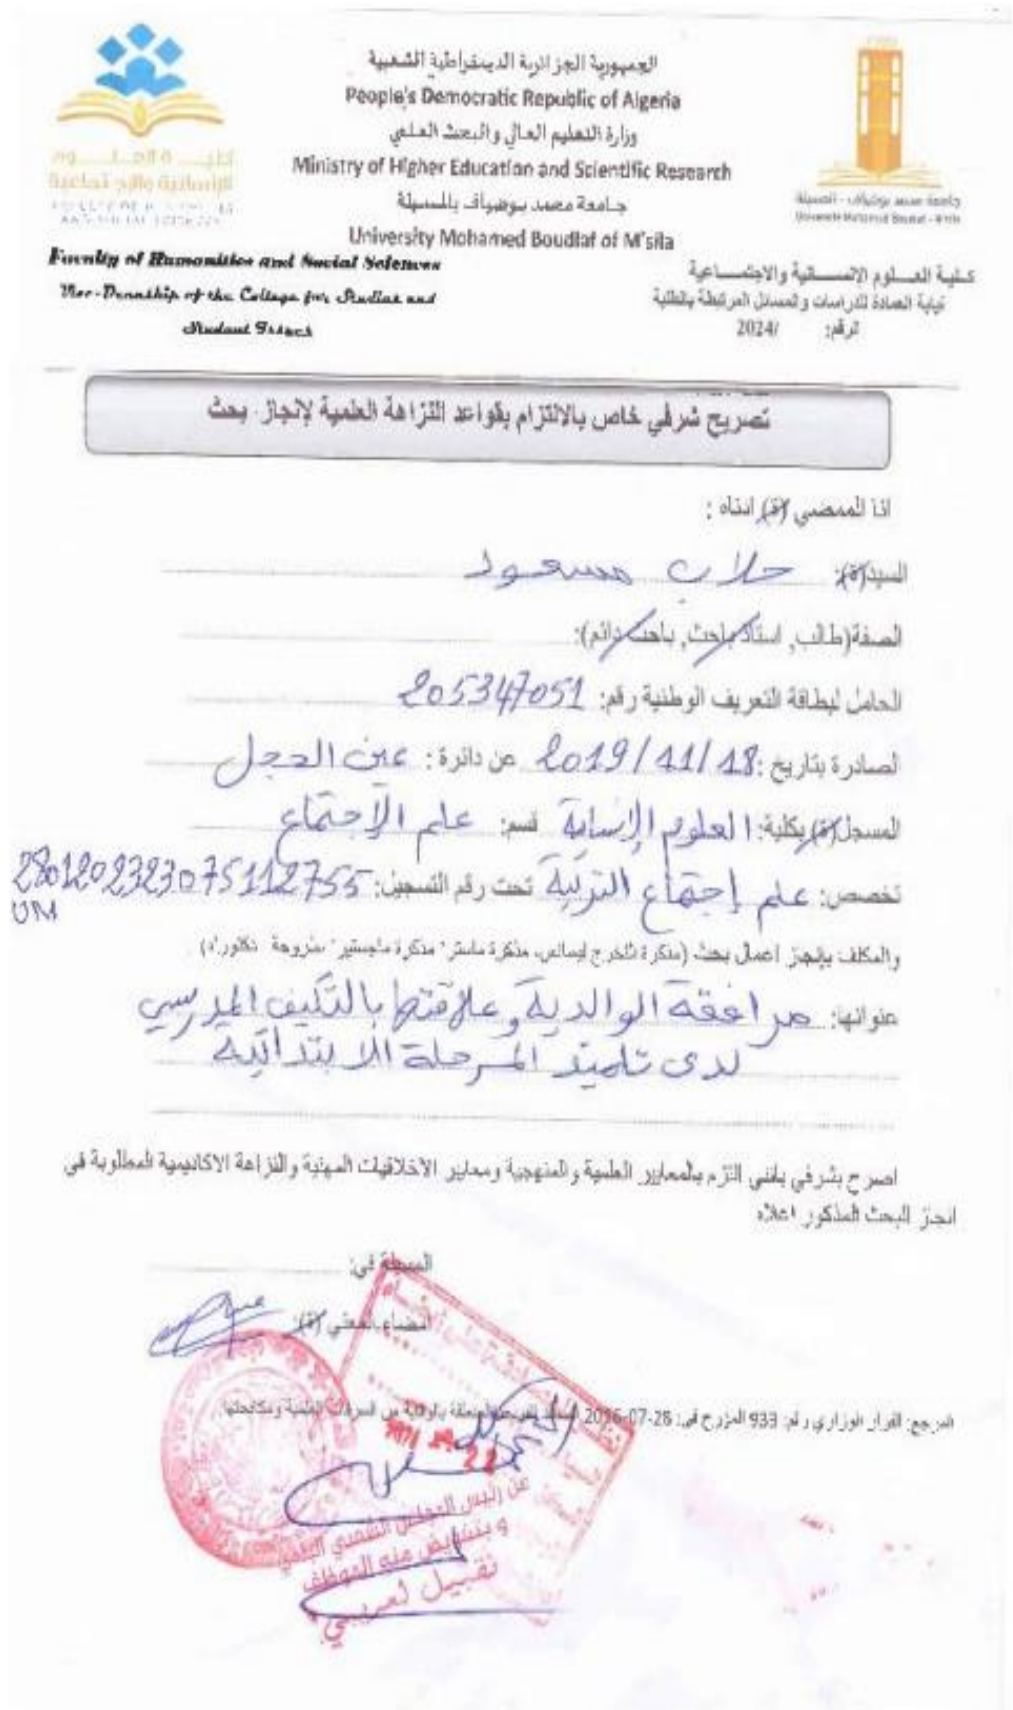 الجمهورية الجزائرية الديمقراطية الشعبية
People's Democratic Republic of Algeria
وزارة التعليم العالي والبحث العلمي
Ministry of Higher Education and Scientific Research
جامعة محمد بوضياف بالمسيلة
University Mohamed Boudiaf of M'sila
جامعة محمد بوضياف - المسيلة
Université Mohamed Boudiaf - M'sila
Faculty of Humanities and Social Sciences
Vice-Deanship of the College for Studies and
Student
كلية العلوم الانسانية والاجتماعية
نيابة العمادة للدراسات والمسائل المرتبطة بالطلبة
الرقم: /2024
تصريح شرفي خاص بالالتزام بقواعد النزاهة العلمية لإنجاز بحث
انا الممضي (ة) ادناه :
السيد(ة): حلاب مسعود
الصفة(طالب, استاذ باحث, باحث دائم):
الحامل لبطاقة التعريف الوطنية رقم: 205347051
الصادرة بتاريخ: 2019/11/18 عن دائرة: عين الحجل
المسجل(ة) بكلية: العلوم الإنسانية قسم: علم الإجتماع
تخصص: علم إجتماع التربية تحت رقم التسجيل: 2801202323075112755
UM
والمكلف بإنجاز اعمال بحث (مذكرة التخرج ليسانس، مذكرة ماستر، مذكرة ماجستير، أطروحة دكتوراه)
عنوانها: مرافقة الوالدية وعلاقتها بالتكيف المدرسي
لدى تلاميذ المرحلة الابتدائية
اصرح بشرفي بأنني التزم بالمعايير العلمية والمنهجية ومعايير الاخلاقيات المهنية والنزاهة الاكاديمية المطلوبة في
انجاز البحث المذكور اعلاه
المسيلة في:
امضاء المعني (ة):
المرجع: القرار الوزاري رقم: 933 المؤرخ في: 28-07-2016 المتعلقة بالوقاية من السرقات العلمية ومكافحتها.
عن رئيس المجلس الشعبي البلدي
و بتفويض منه الموظف
نقبيل لعريبي